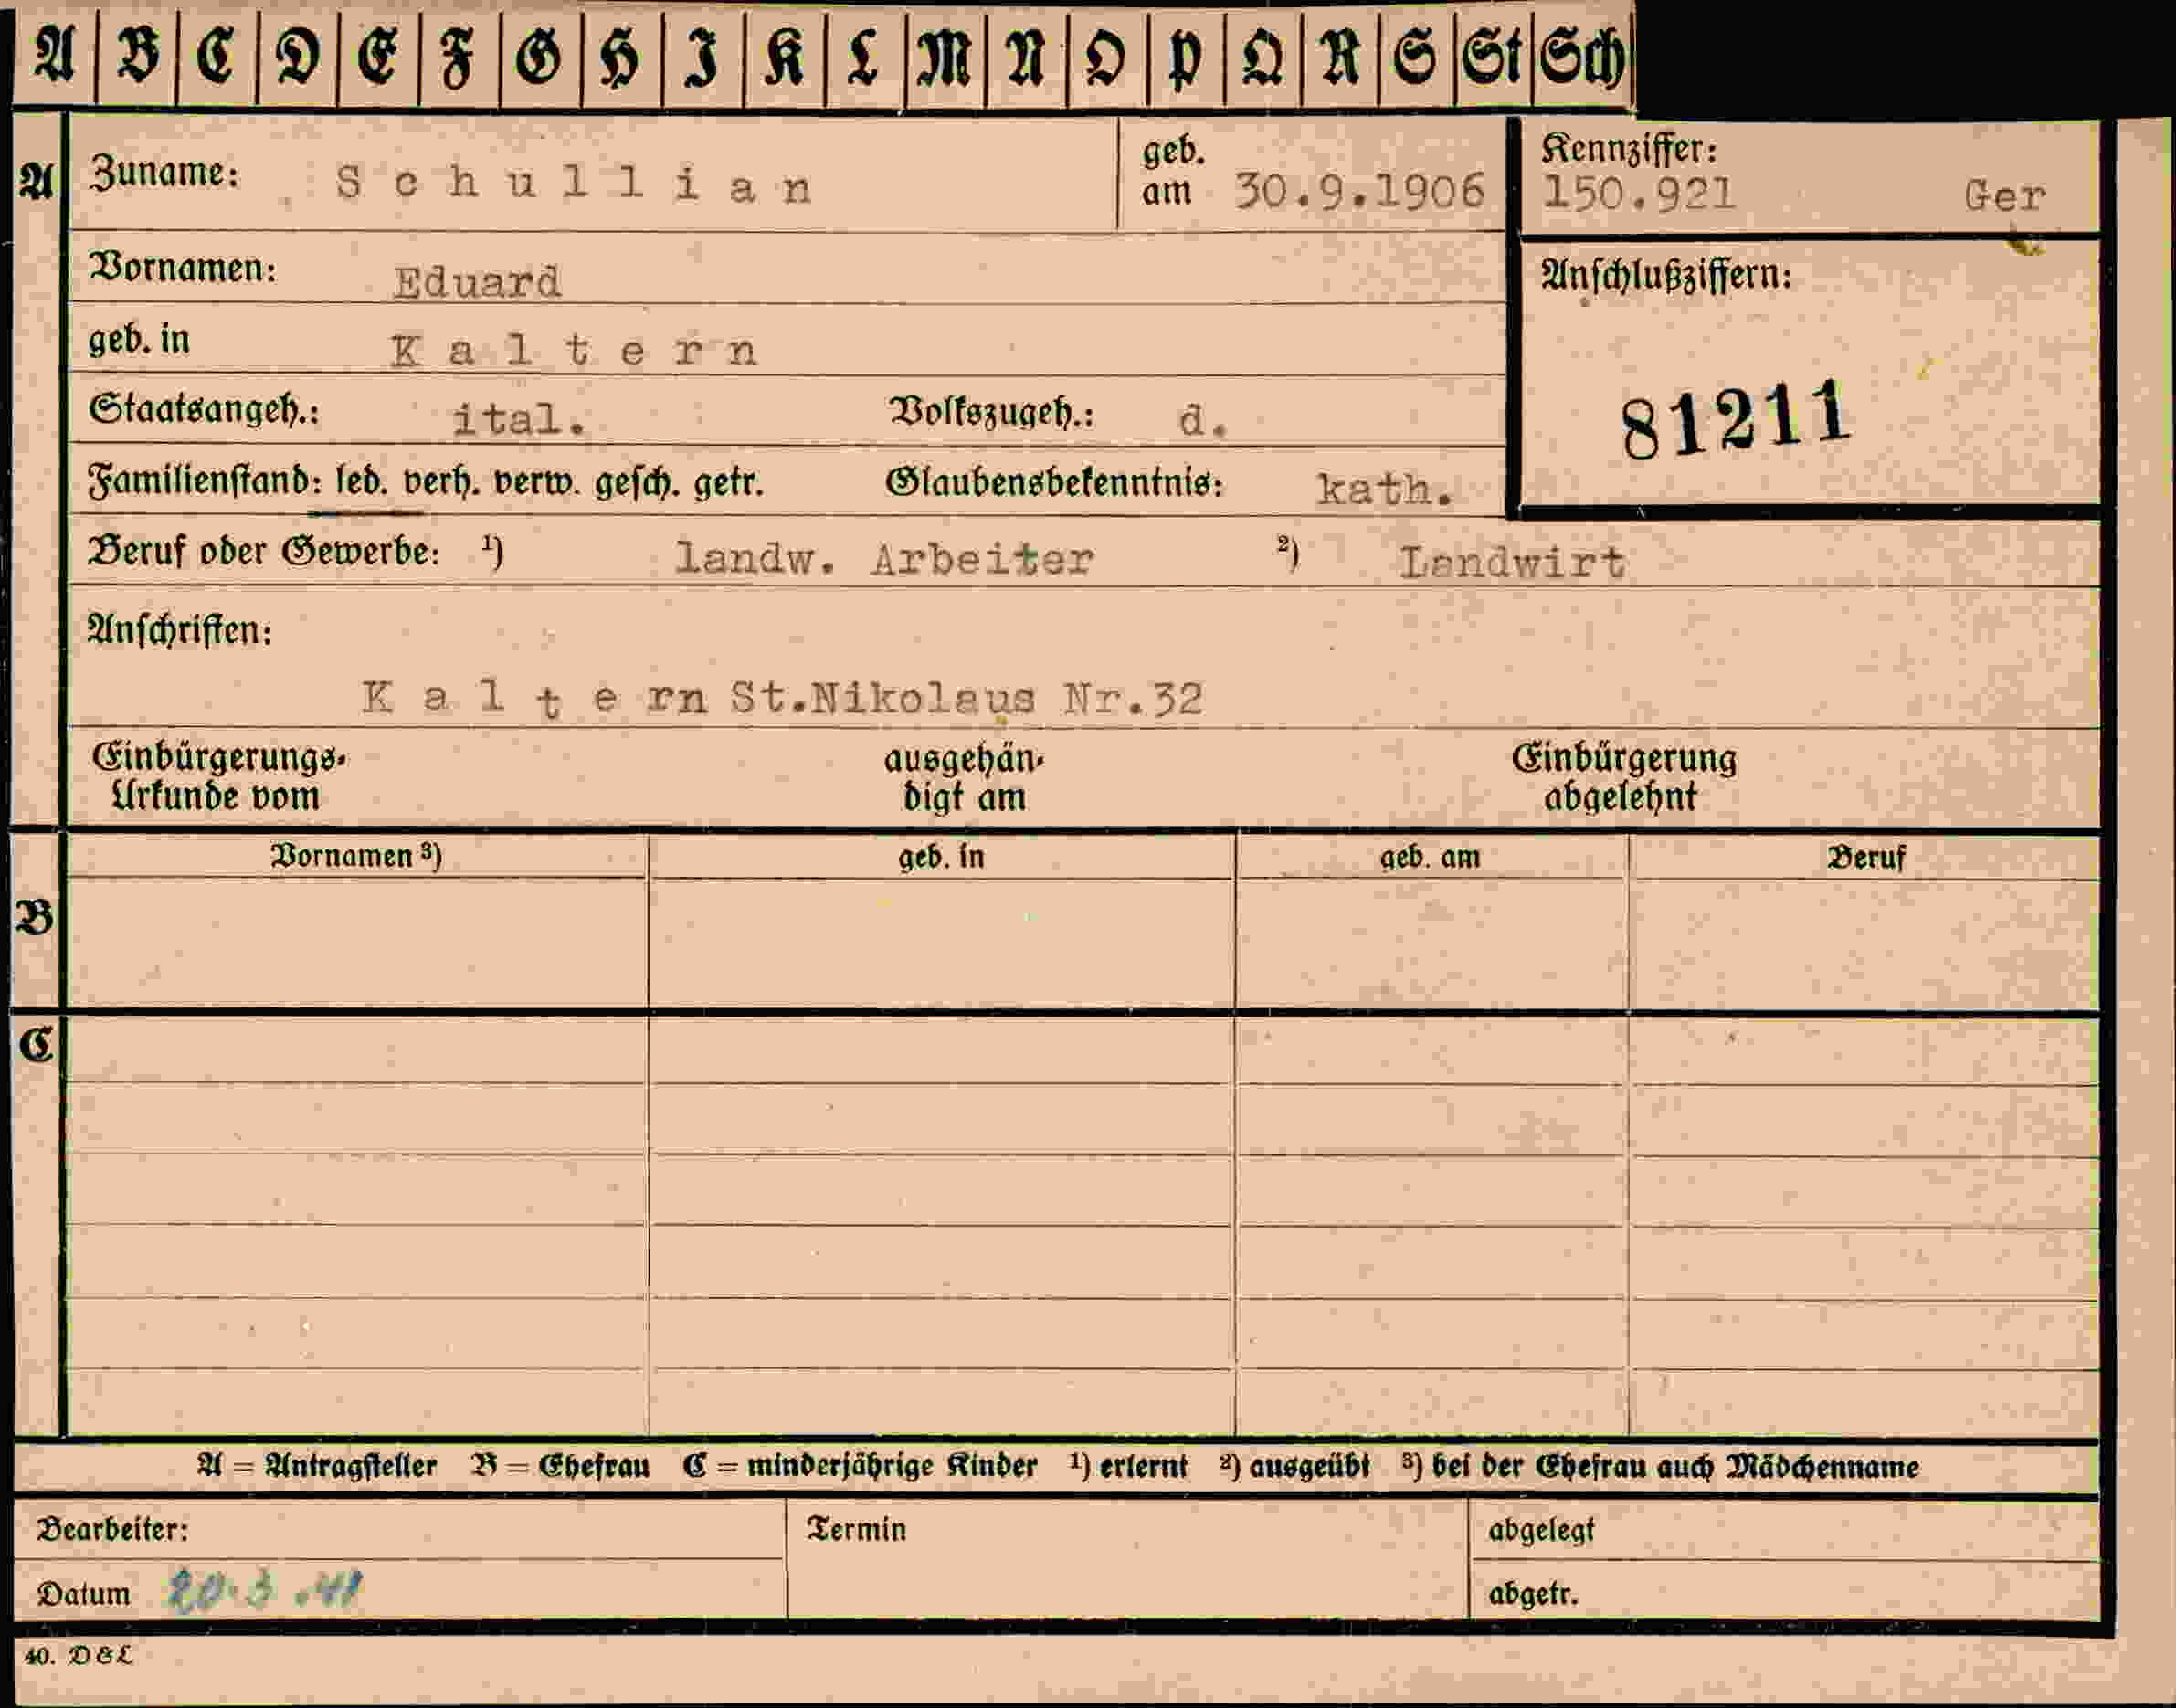 A B C D E F G H I K L M N O P Q R S St Sch
A Zuname: Schullian geb. am 30.9.1906 Kennziffer: 150.921 Ger
Vornamen: Eduard Anschlußziffern:
geb. in Kaltern
81211
Staatsangeh.: ital. Volkszugeh.: d.
Familienstand: led. verh. verw. gesch. getr. Glaubensbekenntnis: kath.
Beruf oder Gewerbe: ¹) landw. Arbeiter ²) Landwirt
Anschriften:
Kaltern St.Nikolaus Nr.32
Einbürgerungs- ausgehän- Einbürgerung
Urkunde vom digt am abgelehnt
Vornamen ³) geb. in geb. am Beruf
B
C
A = Antragsteller B = Ehefrau C = minderjährige Kinder ¹) erlernt ²) ausgeübt ³) bei der Ehefrau auch Mädchenname
Bearbeiter: Termin abgelegt
Datum 20.3.41 abgetr.
40. D & L